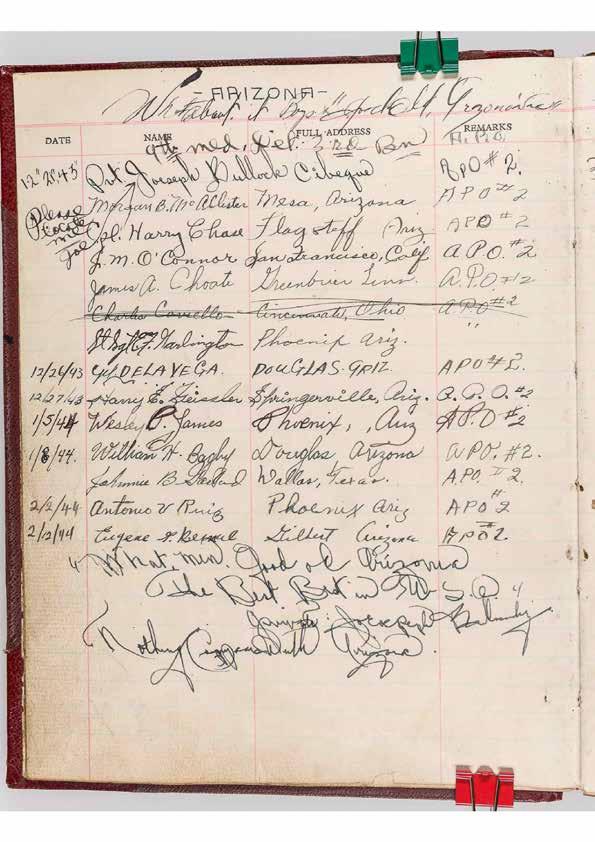 - ARIZONA -
What about it Boys Arizona
DATE NAME FULL ADDRESS REMARKS
4th med, Det. 3rd Bn
12"25,43" Pvt. Joeseph Bullock Cibeque APO #2.
Morgan B. McAllister Mesa, Arizona APO #2
Please locate me Joe
Cpl. Harry Chase Flagstaff Ariz APO #2
J.M. O'Connor San Francisco, Calif A.P.O. #2
James A. Choate Greenbrier Tenn. A.P.O #2
Charles Coviello Cincinnati, Ohio A.P.O #2
St Sgt F. Harlington Phoenix Ariz. "
12/26/43 DE LA VEGA. DOUGLAS-ARIZ. APO #2.
12/27/43 Harry E. Geissler Springerville, Ariz. A.P.O. #2
1/5/44 Wesley P. James Phoenix, , Ariz A.P.O #2
1/8/44. William H. Bagby Douglas, Arizona APO. #2.
Johnnie B. Dallas, Texas. A.P.O. #2.
2/2/44 Antonio V Ruiz Phoenix Ariz APO #2
2/12/44 Eugene Gilbert Arizona APO #2
"What, men. Good ol Arizona
The Best Bet in The U.S.A."
Joeseph
Nothing Arizona.